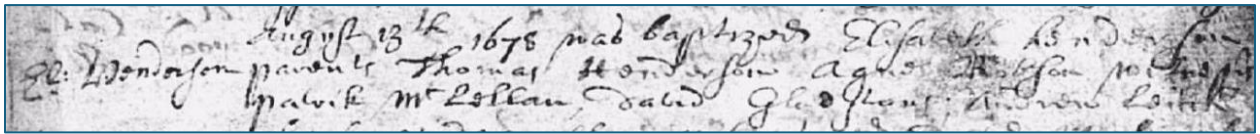 August 13th 1678 was baptized Elisabeth henderson
El: Henderson parents Thomas Henderson Agnes Robson witnesses
patrik McLellan, David Gladstons, Andrew Leitch